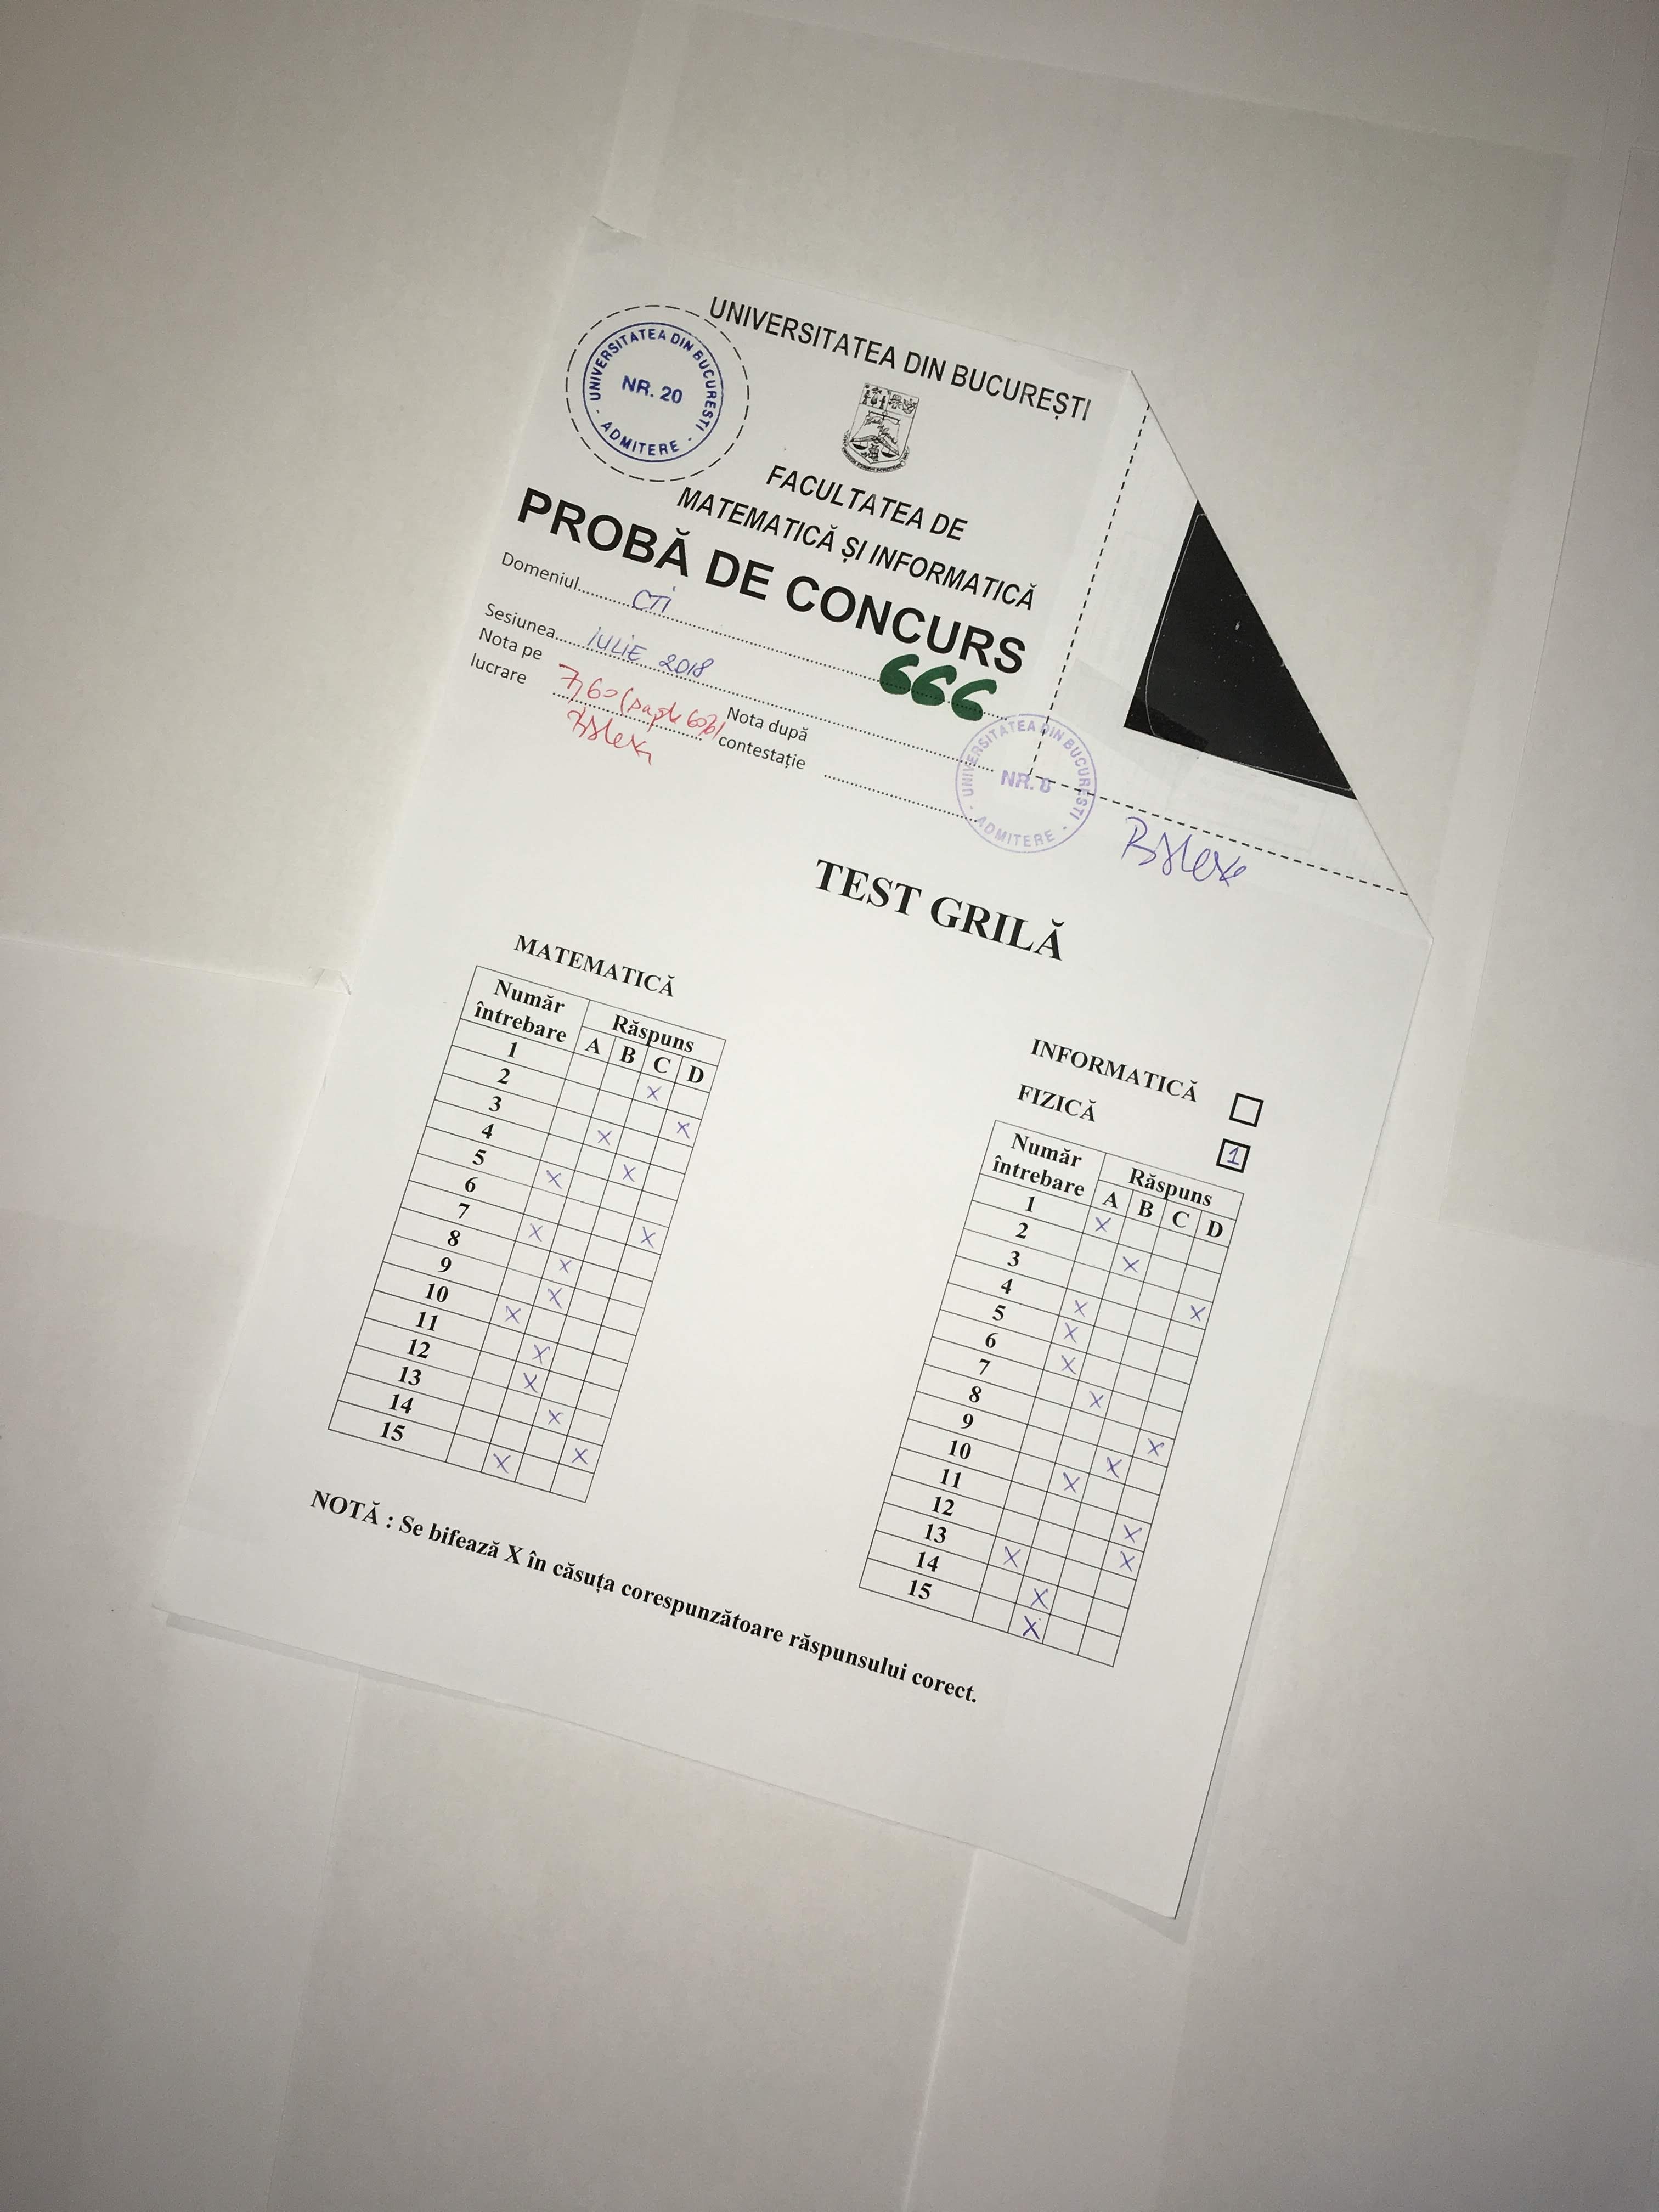 UNIVERSITATEA DIN BUCUREȘTI
UNIVERSITATEA DIN BUCURESTI
NR. 20
ADMITERE
FACULTATEA DE
MATEMATICĂ ȘI INFORMATICĂ
PROBĂ DE CONCURS
Domeniul CTI
666
Sesiunea IULIE 2018
Nota pe
lucrare 7,60
Nota după
contestație
UNIVERSITATEA DIN BUCURESTI
NR. 8
ADMITERE
TEST GRILĂ
MATEMATICĂ
Număr
întrebare
Răspuns
A B C D
1 X
2 X
3 X
4 X
5 X
6 X
7 X
8 X
9 X
10 X
11 X
12 X
13 X
14 X
15 X
INFORMATICĂ
FIZICĂ 1
Număr
întrebare
Răspuns
A B C D
1 X
2 X
3 X
4 X
5 X
6 X
7 X
8 X
9 X
10 X
11 X
12 X
13 X
14 X
15 X
NOTĂ : Se bifează X în căsuța corespunzătoare răspunsului corect.